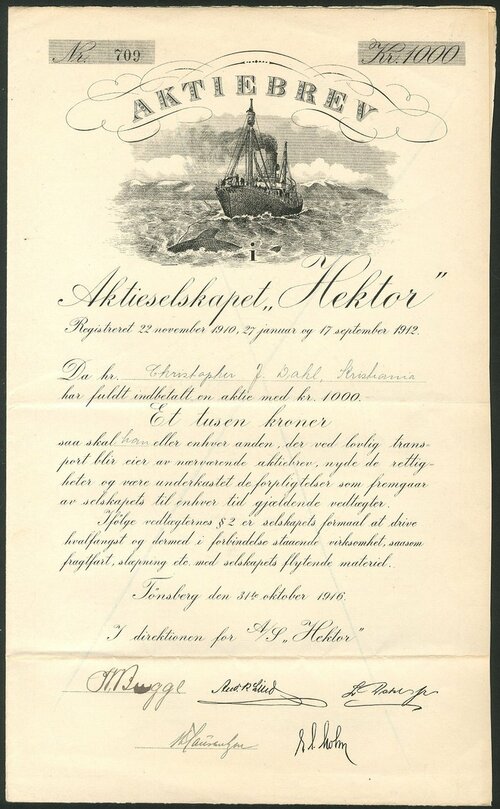 Nr. 709 Kr. 1000
AKTIEBREV
i
Aktieselskapet „Hektor"
Registreret 22 november 1910, 27 januar og 17 september 1912.
Da hr. Christopher J. Dahl, Kristiania
har fuldt indbetalt en aktie med kr. 1000.-
Et tusen kroner
saa skal han eller enhver anden, der ved lovlig trans-
port blir eier av nærværende aktiebrev, nyde de rettig-
heter og være underkastet de forpligtelser som fremgaar
av selskapets til enhver tid gjældende vedtægter.
Ifølge vedtægternes § 2 er selskapets formaal at drive
hvalfangst og dermed i forbindelse staaende virksomhet, saasom
fragtfart, slæpning etc. med selskapets flytende materiel.
Tønsberg den 31te oktober 1916.
I direktionen for A/S „Hektor"
N Bugge